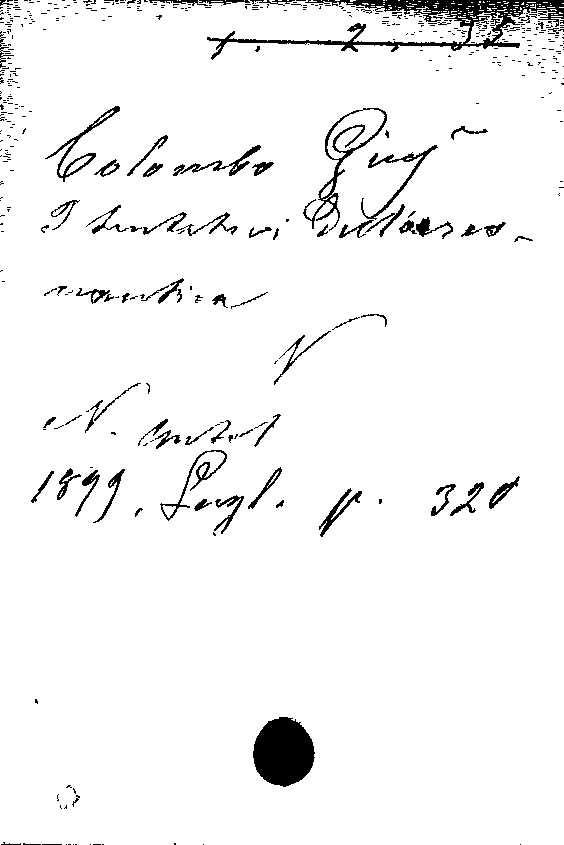 p. 2. 35
Colombo Giuſ
I tentativi dell'aereo-
nautica
V
N. Antol
1899, Lugl. p. 320